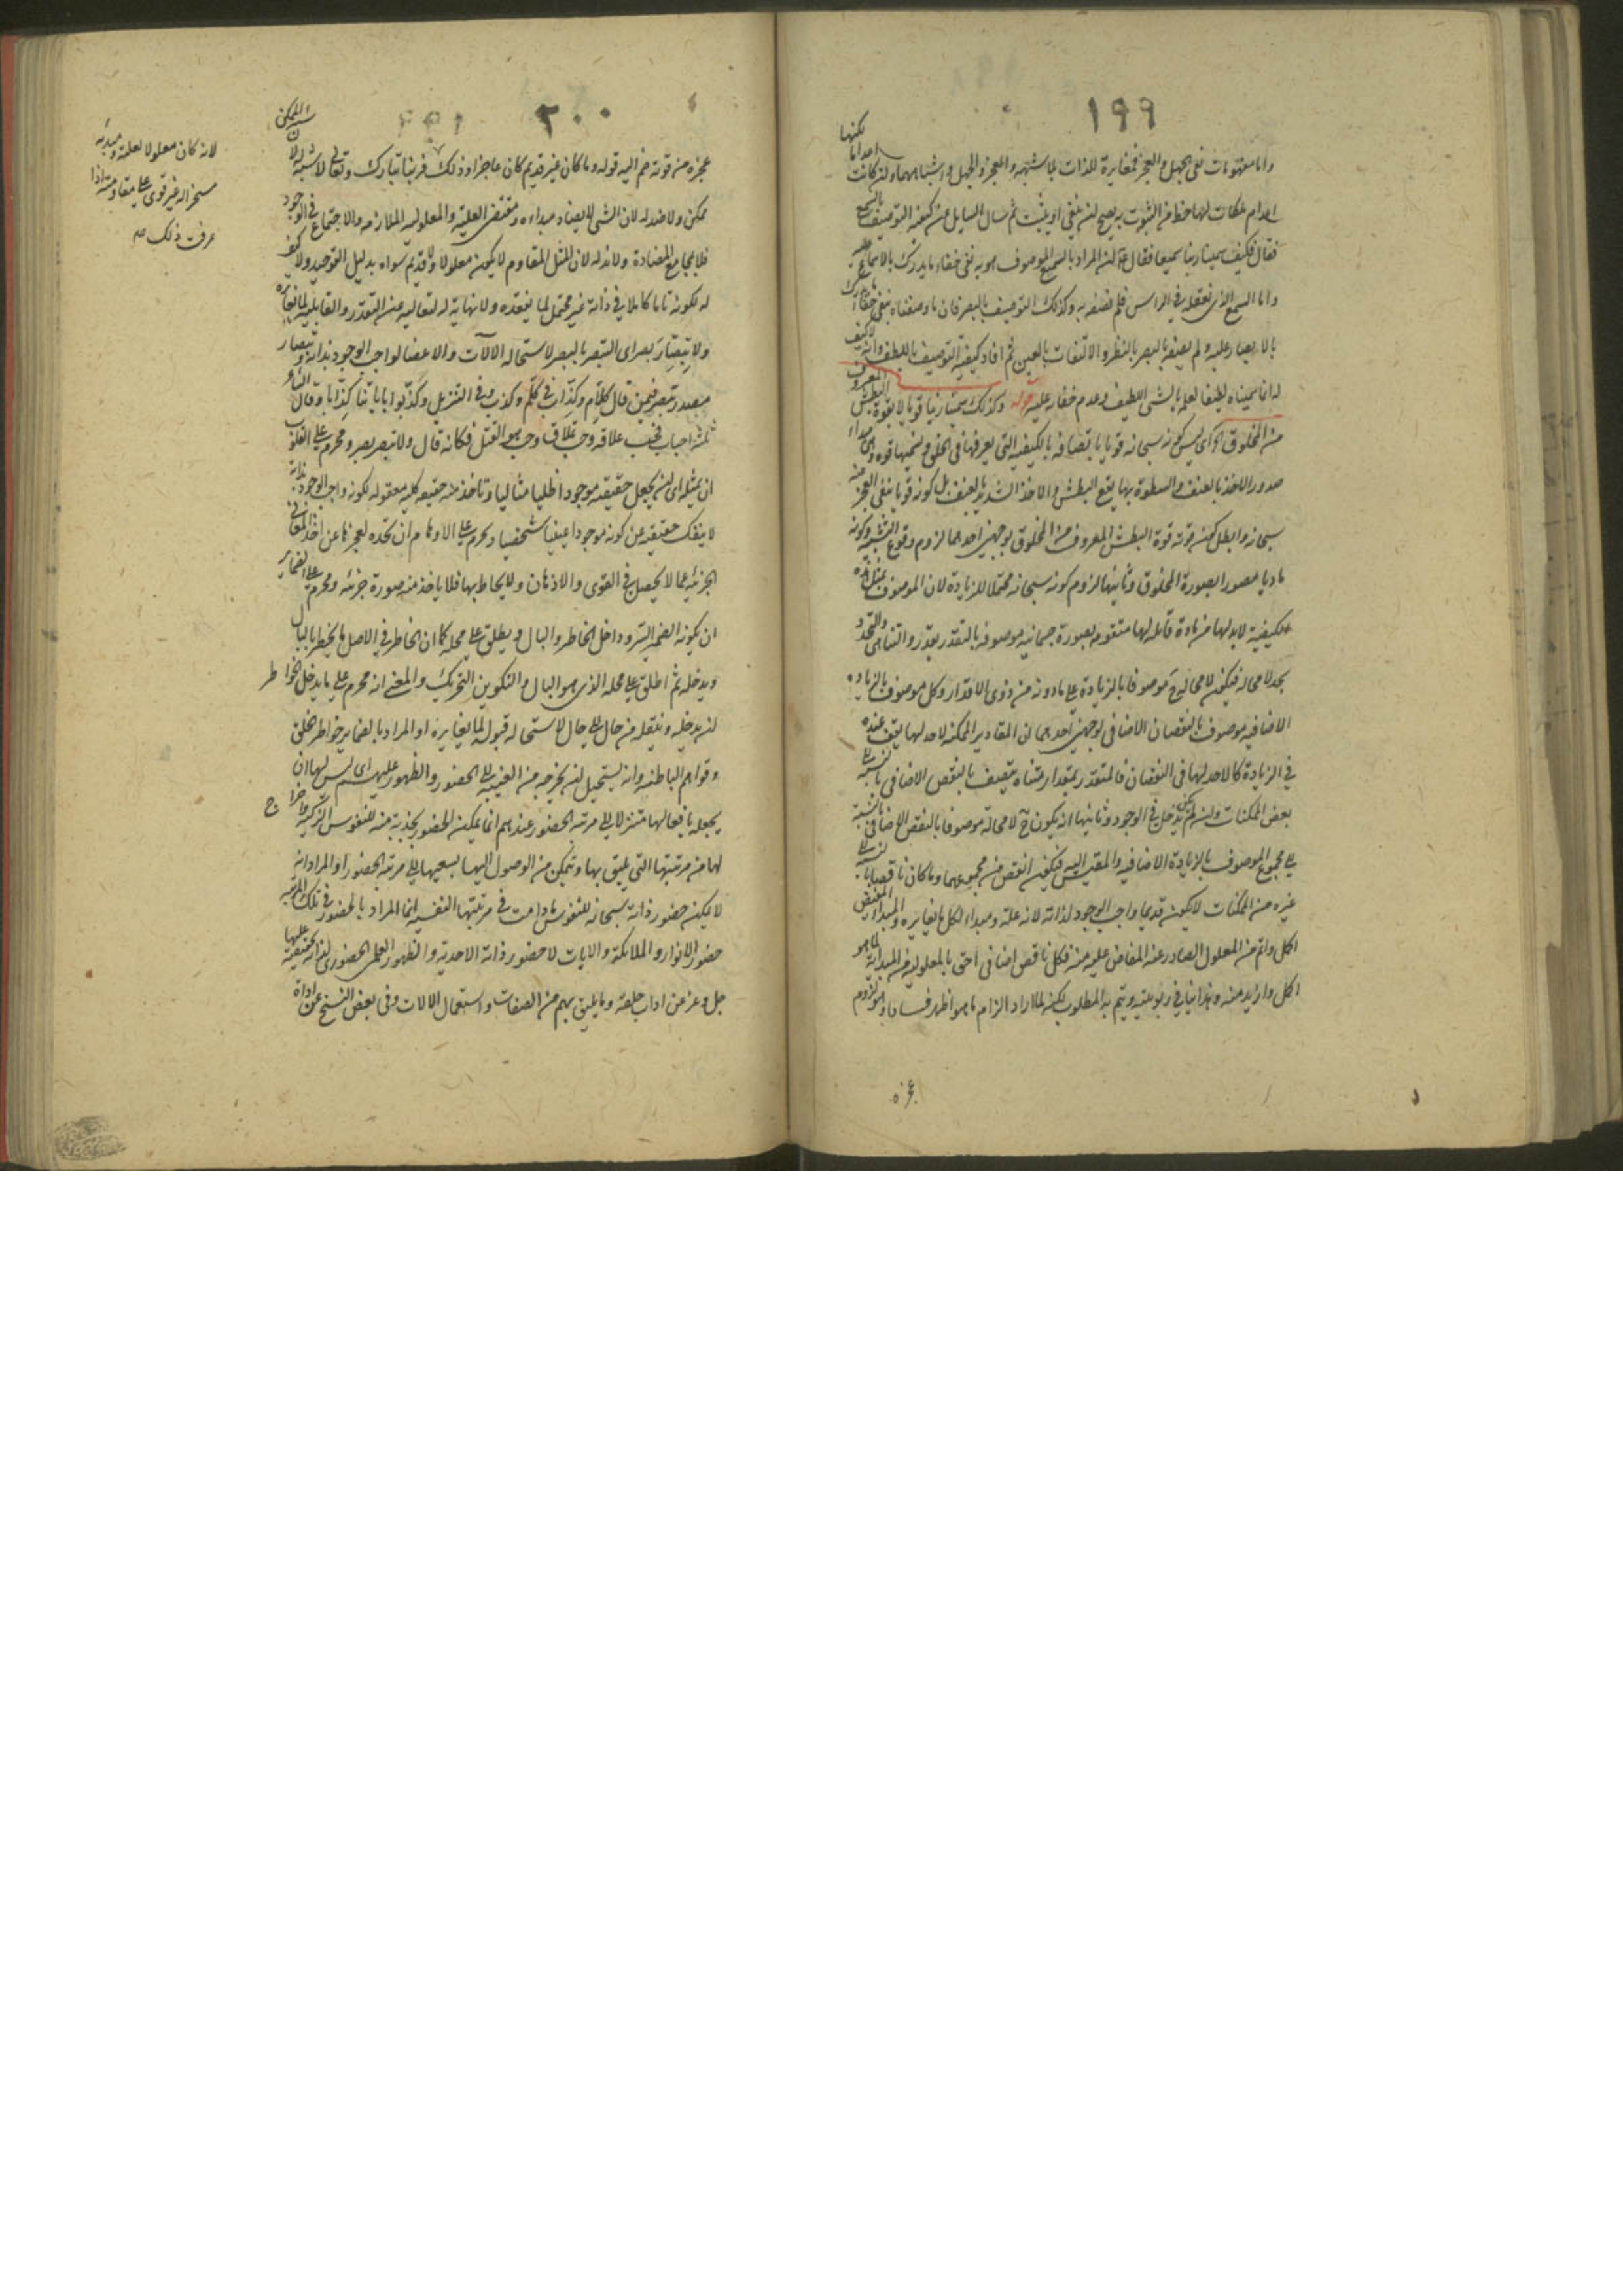 ١٩٩
واما مفهومات نفى الجهل والعجز فمغايرة للذات لما اشتبه والعجز والجهل واشباههما وان كانت اعداما لكنها
اعدام ملكات لها حظ من الثبوت به يصح ان ينفى او يثبت ثم سال السايل عن كيفية التوصيف بالسمع
فقال فكيف سمينا ربنا سميعا فقال ان المراد بالسمع الموصوف هو به نفى خفاء ما يدرك بالاسماع عليه
واما السمع الذى نعقله في الراس فلم نصفه به وكذلك التوصيف بالبصر فان ما وصفناه بنفى خفاء ما يدرك
بالابصار عليه ولم نصفه بالبصر بالنظر والالتفات بالعين ثم افاد كيفية التوصيف باللطف وانه لا كيف
له انما سميناه لطيفا لعلمه بالشى اللطيف وعدم خفائه عليه قوله وكذلك سمينا ربنا قويا لا بقوة البطش المعروف
من المخلوق اى ليس كونه سبحانه قويا باتصافه بالكيفية التى يعرفها في الخلق ونسميها قوة وهى مبداء
صدور الاخذ بالعنف والسطوة بها يقع البطش والاخذ الشديد بالعنف بل كونه قويا بنفى العجز عنه
سبحانه وابطل كون قوته قوة البطش المعروف من المخلوق بوجهين احدهما لزوم وقوع التشبيه وكونه
ماديا مصورا بصورة المخلوق وثانيهما لزوم كونه سبحانه محتملا للزيادة لان الموصوف بمثل هذه
الكيفية لابد لها من مادة قابلة لها متقومة بصورة جسمانية موصوفة بالتقدر بقدر والتناهى والتحدد
بحد لا محالة فيكون لا محالة ح موصوفا بالزيادة على ما دونه من ذوى الاقدار وكل موصوف بالزيادة
الاضافية موصوف بالنقصان الاضافى لوجهين احدهما ان المقادير الممكنة لا حد لها يقف عنده
في الزيادة كما لا حد لها في النقصان فالمتقدر بمقدار متناه يتصف بالنقص الاضافى بالنسبة الى
بعض الممكنات وان لم يدخل في الوجود وثانيها انه يكون ح لا محالة موصوفا بالنقص الاضافى بالنسبة
الى مجموع الموصوف بالزيادة الاضافية والمقيس اليه فيكون انقص من مجموعهما وما كان ناقصا بالنسبة الى
غيره من الممكنات لا يكون قديما واجب الوجود لذاته لانه علة ومبداء لكل ما يغايره والمبداء المفيض
اكمل واتم من المعلول الصادر عنه المفاض عليه منه فكل ناقص اضافى احق بالمعلولية من المبدائية لما هو
اكمل وازيد منه وهذا ينافي ربوبيته ويتم به المطلوب لكنه لما اراد الزام ما هو اظهر فسادا وهو لزوم
عجزه
٢٠٠
عجزه من قوته ضم اليه قوله وما كان غير قديم كان عاجزا وذلك فربنا تبارك وتعالى لا شبه له لان شبه الممكن
ممكن ولا ضد له لان الشى لا يضاد مبداءه ومقتضى العلية والمعلولية الملازمة والاجتماع في الوجود
فلا يجامع المضادة ولا ند له لان المثل المقاوم لا يكون معلولا ولا قديم سواه بدليل التوحيد ولا كيف
له لكونه تاما كاملا في ذاته غير محتمل لما يفقده ولا نهاية له لتعاليه عن التقدر والقابلية لما يغايره
ولا تبصار بصر اى التبصر بالبصر لاستحالة الالات والاعضا لواجب الوجود بذاته وتبصار
مصدر تبصر فيمن قال كلام وكذاب في كلم وكذب وفي التنزيل وكذبوا باياتنا كذابا وقال الشاعر
ثلثة احباب فحب علاقة وحب تملاق وحب هو القتل فكانه قال ولا تبصر بصر ومحرم على القلوب
ان يمثله اى ان يجعل حقيقته موجودا ظليا مثاليا وتاخذ منه حقيقة كلية معقولة لكونه واجب الوجود بذاته
لا ينفك حقيقته عن كونه موجودا عينيا شخصيا ومحرم على الاوهام ان تحده لعجزها عن اخذ المعانى
الجزئية عما لا يحصل في القوى والاذهان ولا يحاط بها فلا ياخذ منه صورة جزئية ومحرم على الضماير
ان يكونه الضمير السر وداخل الخاطر والبال ويطلق على محله كما ان الخاطر في الاصل ما يخطر بالبال
ويدخله ثم اطلق على محله الذى هو البال والتكوين التحريك والمعنى انه محرم على ما يدخل الخواطر
ان يدخله وينقله من حال الى حال لاستحالة قبوله لما يغايره او المراد بالضماير خواطر الخلق
وقواهم الباطنة وانه يستحيل ان يخرجه من الغيبة الى الحضور والظهور عليهم اى ليس لها ان
يجعله بافعالها متنزلا الى مرتبة الحضور عندهم انما يمكن الحضور بجذبة منه للنفوس الزكية واخراج
لها من مرتبتها التى يليق بها وتمكن من الوصول اليها بسعيها الى مرتبة الحضور او المراد انه
لا يمكن حضور ذاته سبحانه للنفوس ما دامت في مرتبتها النفسية انما المراد بالحضور في تلك المرتبة
حضور الانوار والملائكة والايات لا حضور ذاته الاحدية والظهور العلمى الحضورى لذاته بحقيقته عليها
جل وعز عن اداة خلقه وما يليق بهم من الصفات واستعمال الالات وفي بعض النسخ عن اداة
لانه كان معلولا لعلته ومبدئه
مسخرا له غير قوى على مقاومته اذا
عرفت ذلك صح